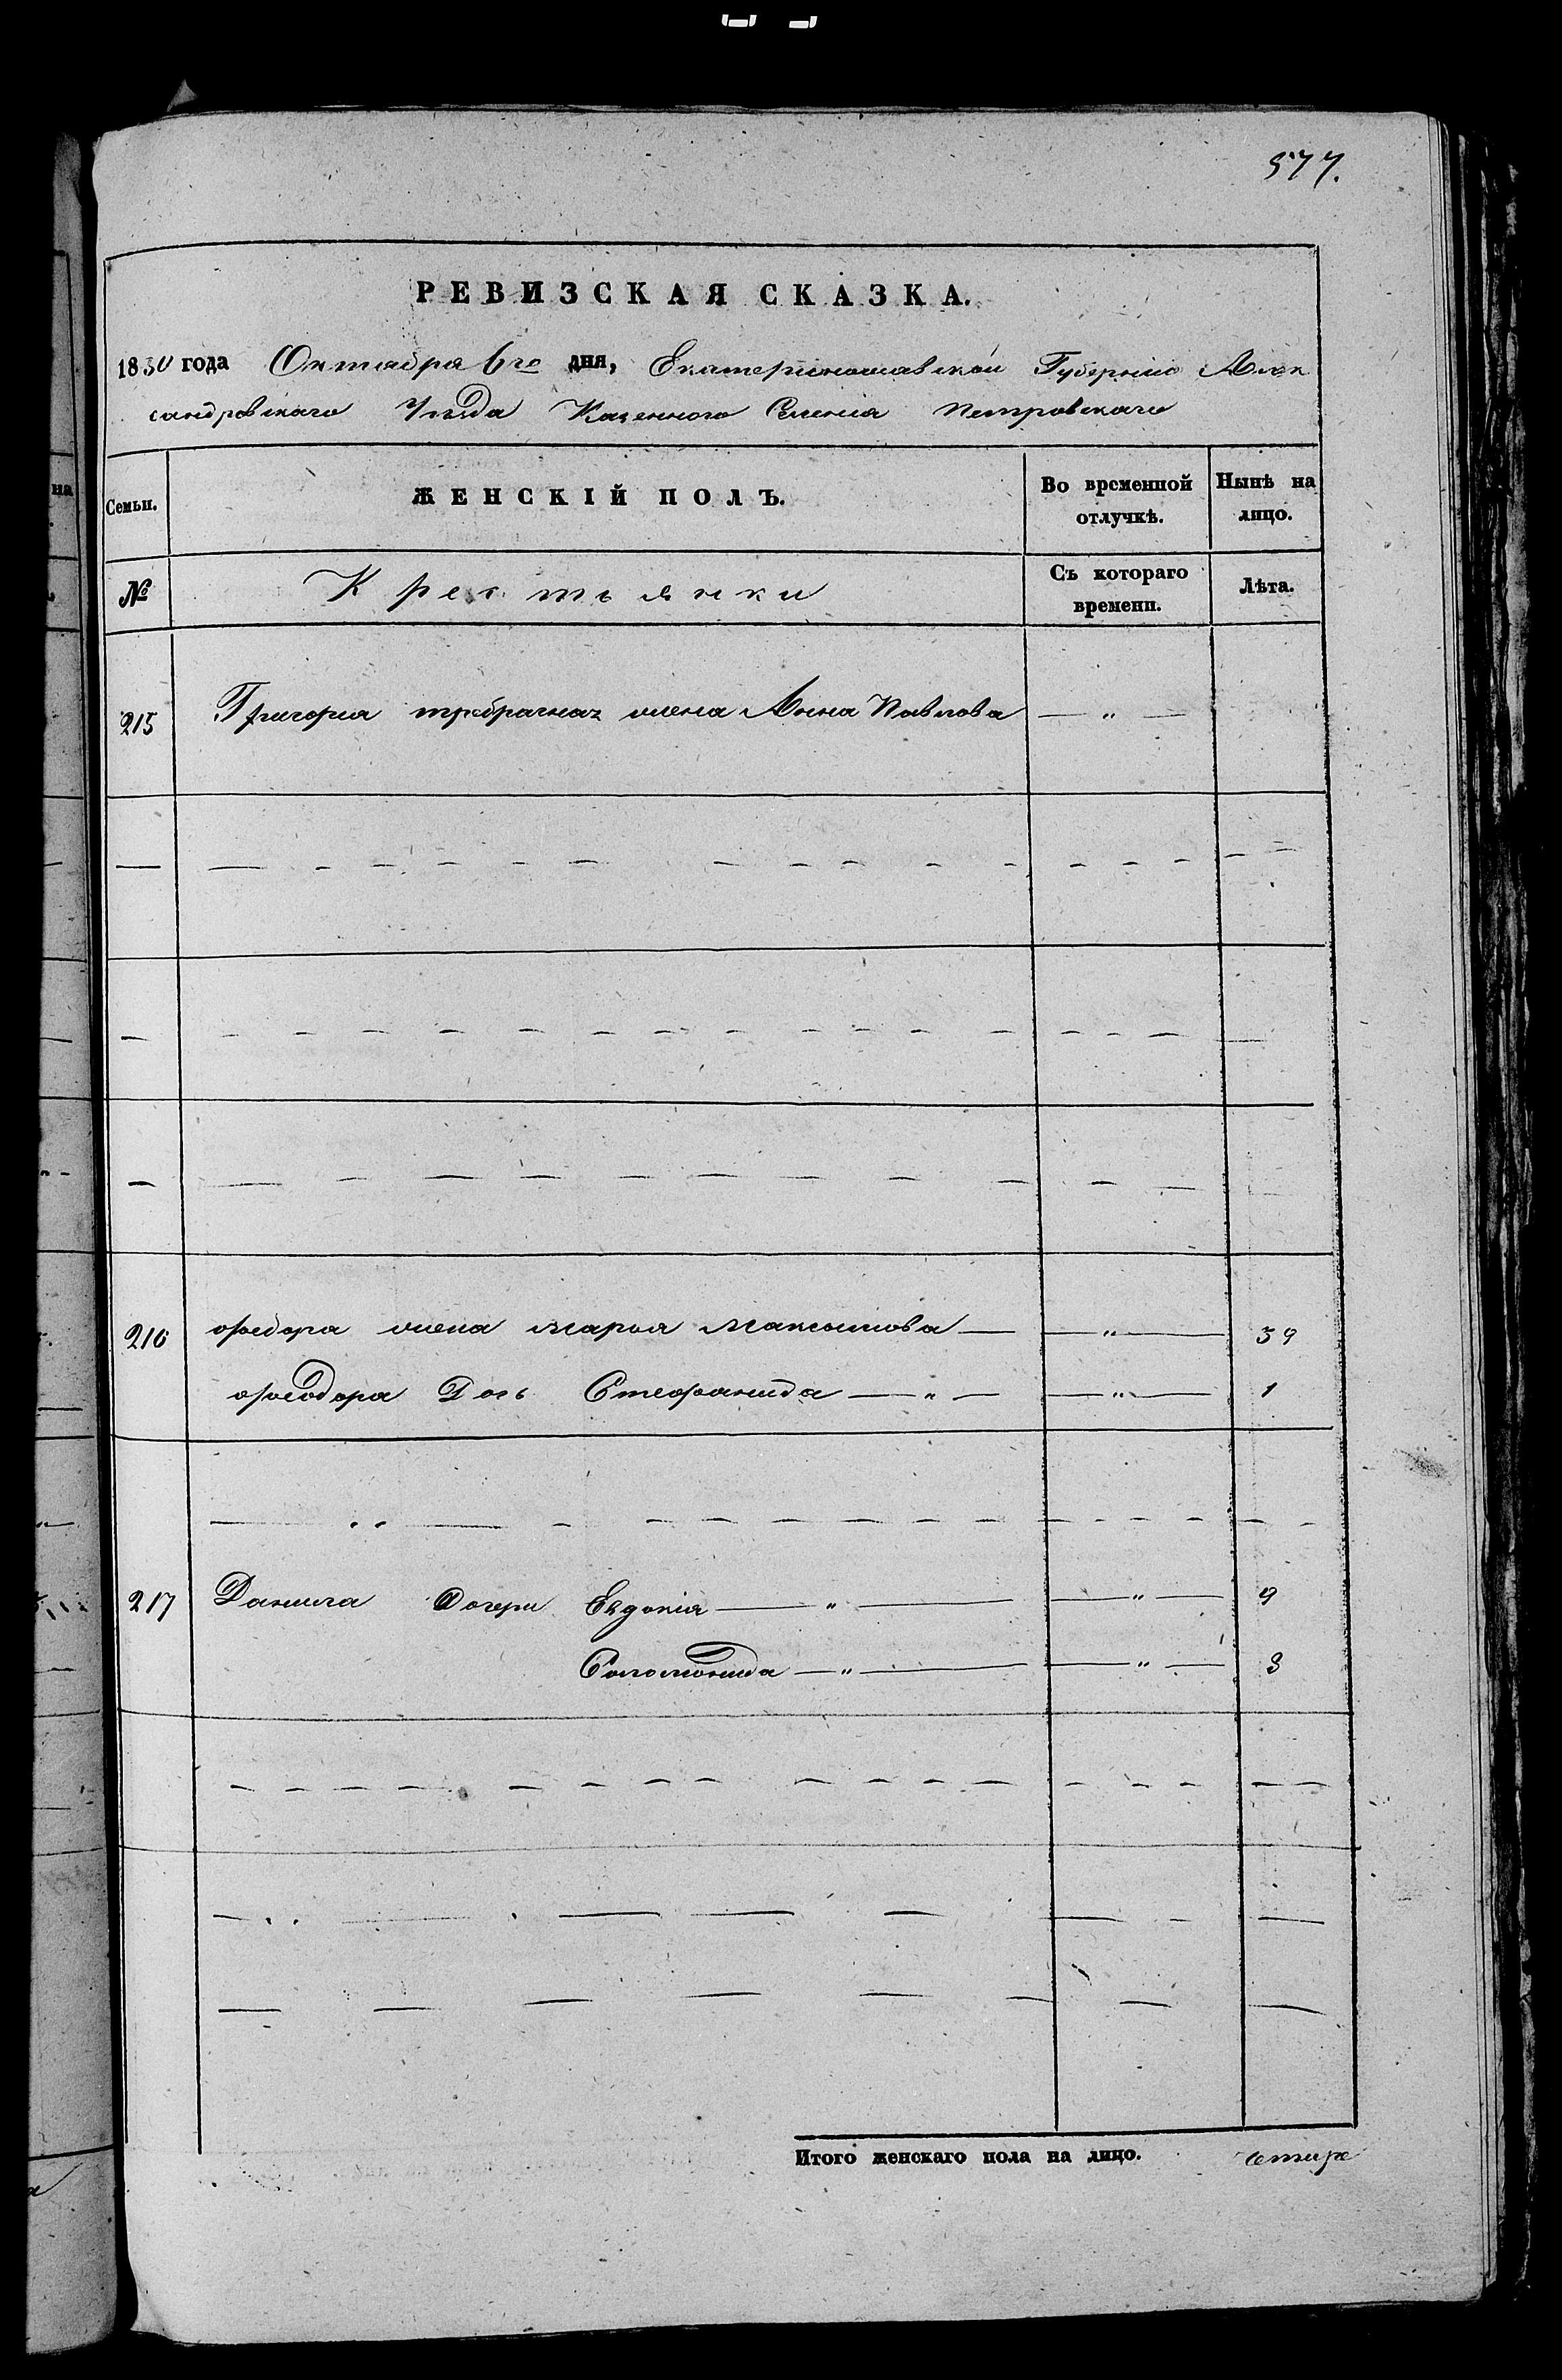 577.
РЕВИЗСКАЯ СКАЗКА.
1850 года Октября 6го дня, Екатеринославской Губерніи Алек
сандровскаго Уѣзда Казенного Селенія Петровскаго
на
Семьи. ЖЕНСКІЙ ПОЛЪ. Во временной отлучкѣ. Нынѣ на лицо.
№ Крестьянки Съ котораго времени. Лѣта.
215 Григорія жена Анна Павлова — " —
216 Феодора жена Марья Максимова — — " — 39
Феодора Дочь Стефанида — " — — " — 1
217 Данила Дочери Евдокія — " — — " — 9
Соломонида — " — — " — 3
Итого женскаго пола на лицо. четыре